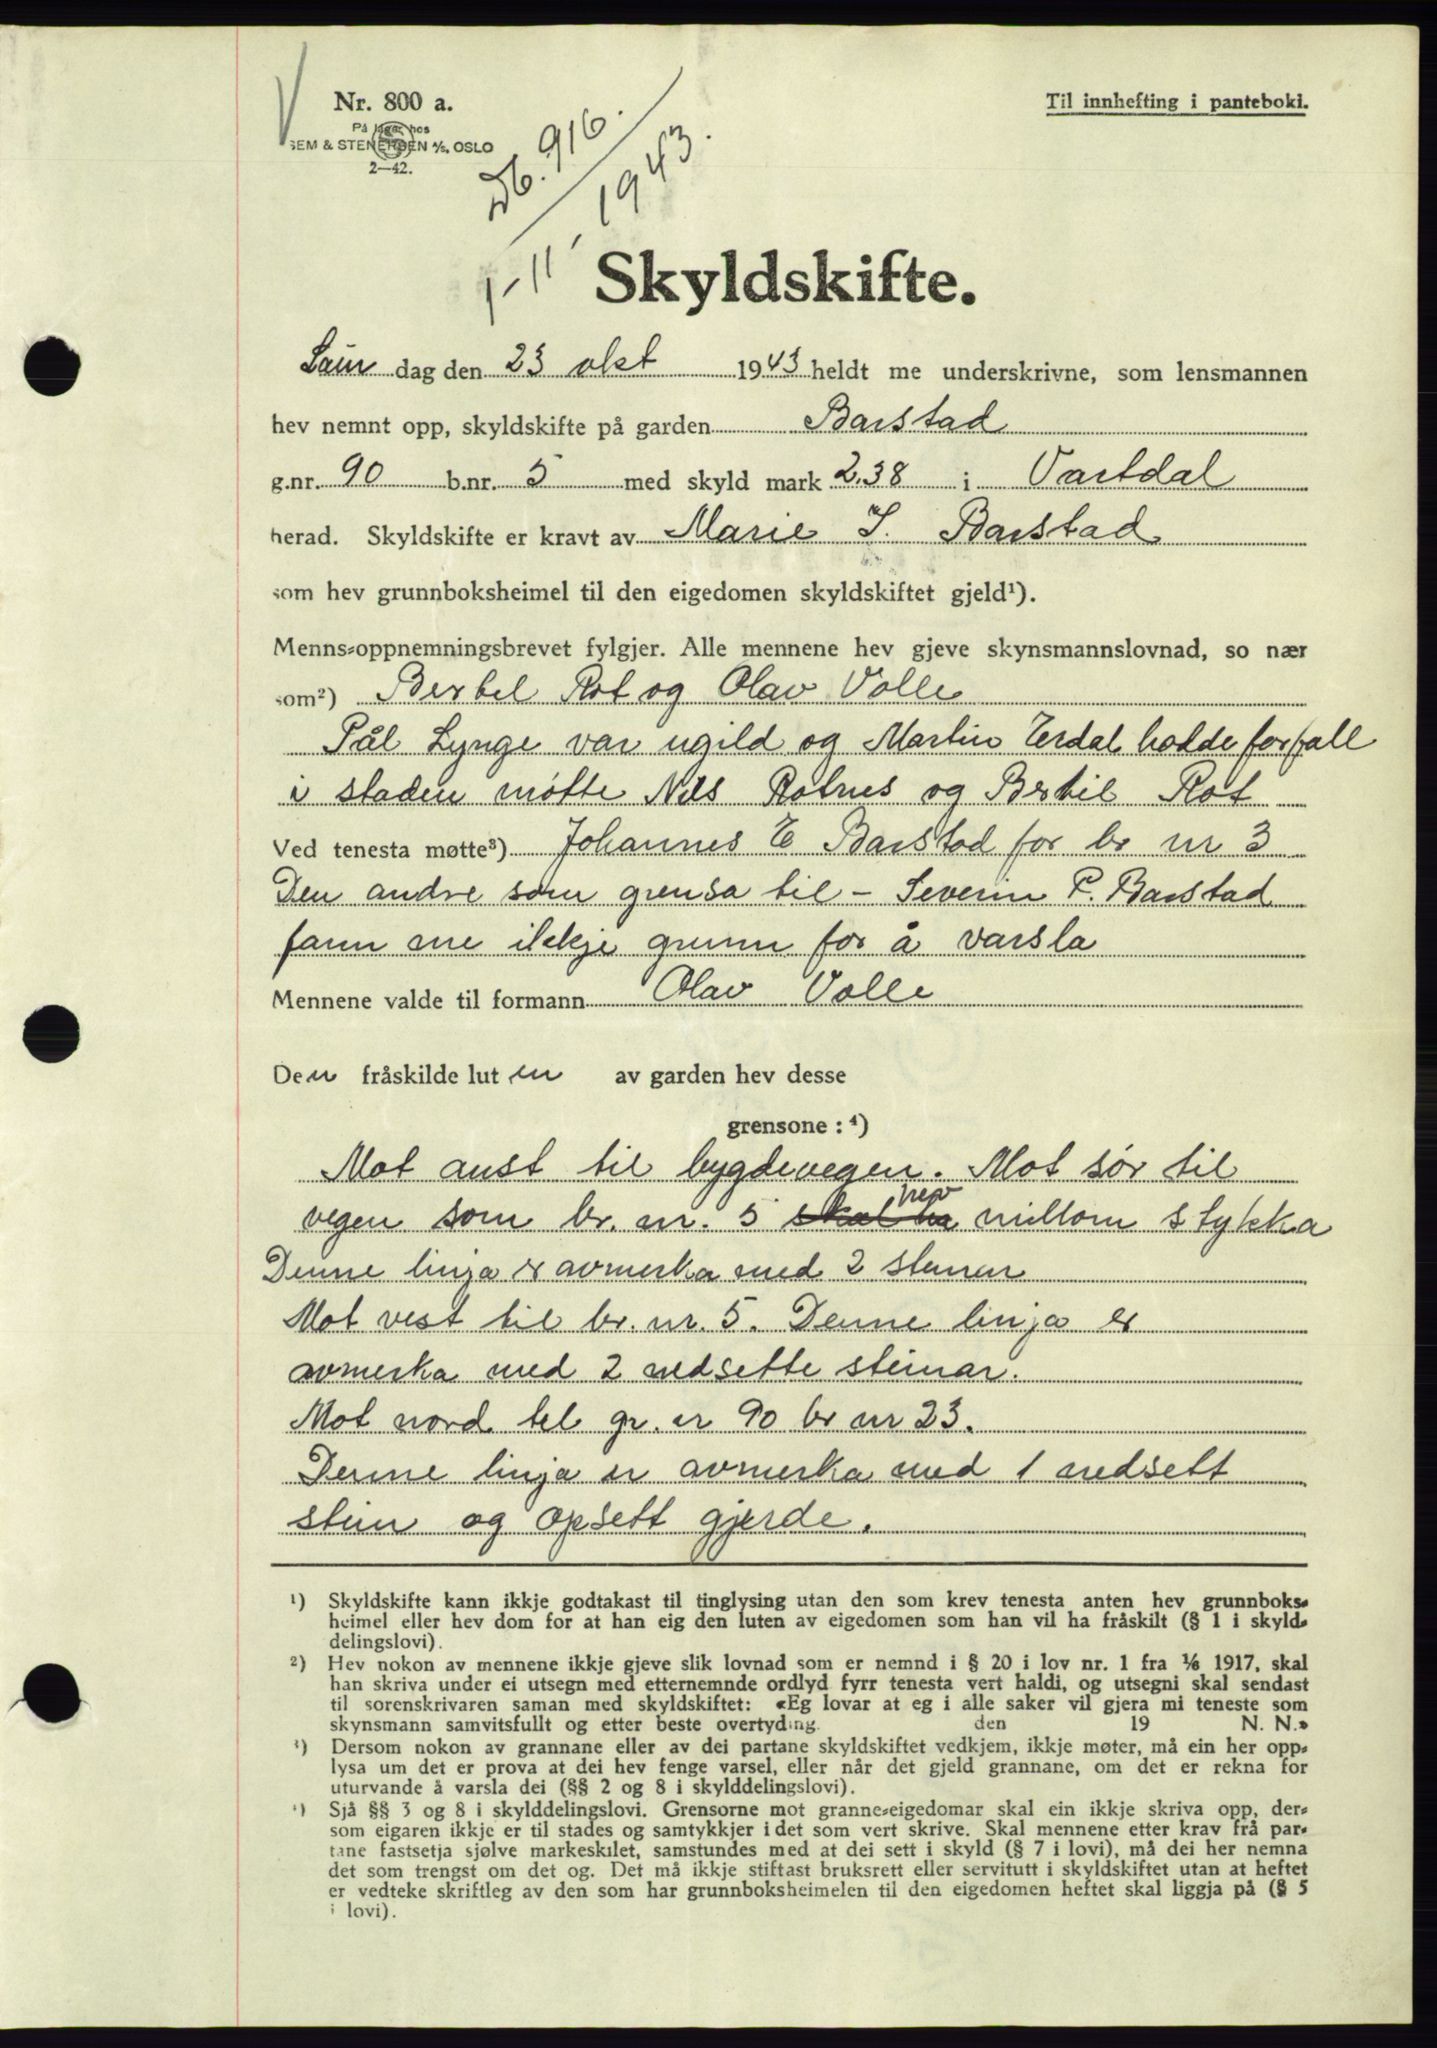 Nr. 800 a.
Til innhefting i panteboki.
På lager hos
SEM & STENERSEN A/S, OSLO
2—42.
Db. 916.
1-11, 1943.
Skyldskifte.
Laur dag den 23 okt 1943 heldt me underskrivne, som lensmannen
hev nemnt opp, skyldskifte på garden Barstad
g.nr. 90 b.nr. 5 med skyld mark 2,38 i Vartdal
herad. Skyldskifte er kravt av Marie I. Barstad
som hev grunnboksheimel til den eigedomen skyldskiftet gjeld¹).
Menns-oppnemningsbrevet fylgjer. Alle mennene hev gjeve skynsmannslovnad, so nær
som²) Bertel Rot og Olav Volle
Pål Lynge var ugild og Martin Erdal hadde forfall
i staden møtte Nils Rotnes og Bertil Rot
Ved tenesta møtte³) Johannes E Barstad for br nr 3
Den andre som grensa til – Severin P. Barstad
fann me ikkje grunn for å varsla
Mennene valde til formann Olav Volle
Den fråskilde luten av garden hev desse
grensone: ⁴)
Mot aust til bygdevegen. Mot sør til
vegen som br. nr. 5 skal ha hev millom stykka
Denne linja er avmerka med 2 steinar
Mot vest til br. nr. 5. Denne linja er
avmerka med 2 nedsette steinar.
Mot nord til gr. nr 90 br nr 23.
Denne linja er avmerka med 1 nedsett
stein og opsett gjerde.
¹) Skyldskifte kann ikkje godtakast til tinglysing utan den som krev tenesta anten hev grunnboks-
heimel eller hev dom for at han eig den luten av eigedomen som han vil ha fråskilt (§ 1 i skyld-
delingslovi).
²) Hev nokon av mennene ikkje gjeve slik lovnad som er nemnd i § 20 i lov nr. 1 fra 1/6 1917, skal
han skriva under ei utsegn med etternemnde ordlyd fyrr tenesta vert haldi, og utsegni skal sendast
til sorenskrivaren saman med skyldskiftet: «Eg lovar at eg i alle saker vil gjera mi teneste som
skynsmann samvitsfullt og etter beste overtyding. den 19 N. N.»
³) Dersom nokon av grannane eller av dei partane skyldskiftet vedkjem, ikkje møter, må ein her opp-
lysa um det er prova at dei hev fenge varsel, eller når det gjeld grannane, om det er rekna for
uturvande å varsla dei (§§ 2 og 8 i skylddelingslovi).
⁴) Sjå §§ 3 og 8 i skylddelingslovi. Grensorne mot granne-eigedomar skal ein ikkje skriva opp, der-
som eigaren ikkje er til stades og samtykkjer i det som vert skrive. Skal mennene etter krav frå par-
tane fastsetja sjølve markeskilet, samstundes med at dei sett i skyld (§ 7 i lovi), må dei her nemna
det som trengst om det og. Det må ikkje stiftast bruksrett eller servitutt i skyldskiftet utan at heftet
er vedteke skriftleg av den som har grunnboksheimelen til den eigedomen heftet skal liggja på (§ 5
i lovi).